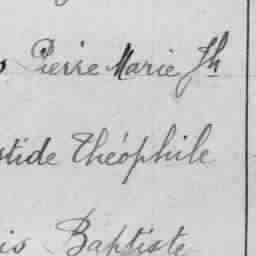 Pierre Marie Jh
stide Théophile
is Baptiste